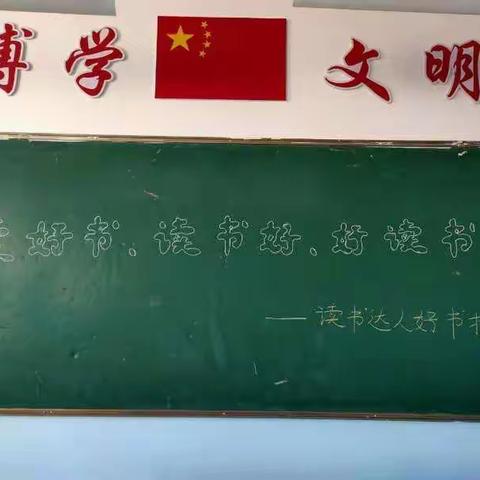 博学 文明
读好书、读书好、好读书
——读书达人好书推